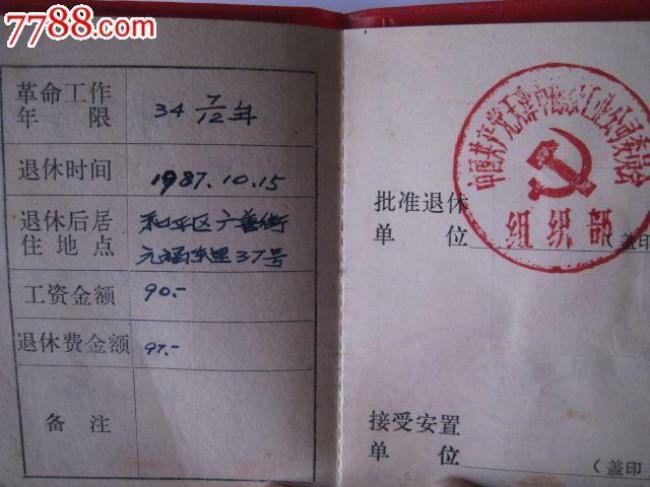 7788.com
革命工作
年 限
34 7/12 年
退休时间
1987.10.15
退休后居
住地点
和平区广善街
元福东里37号
工资金额
90.-
退休费金额
97.-
备 注
中国共产党天津市
工业公司委员会
组织部
批准退休
单 位
(盖印
接受安置
单 位
(盖印